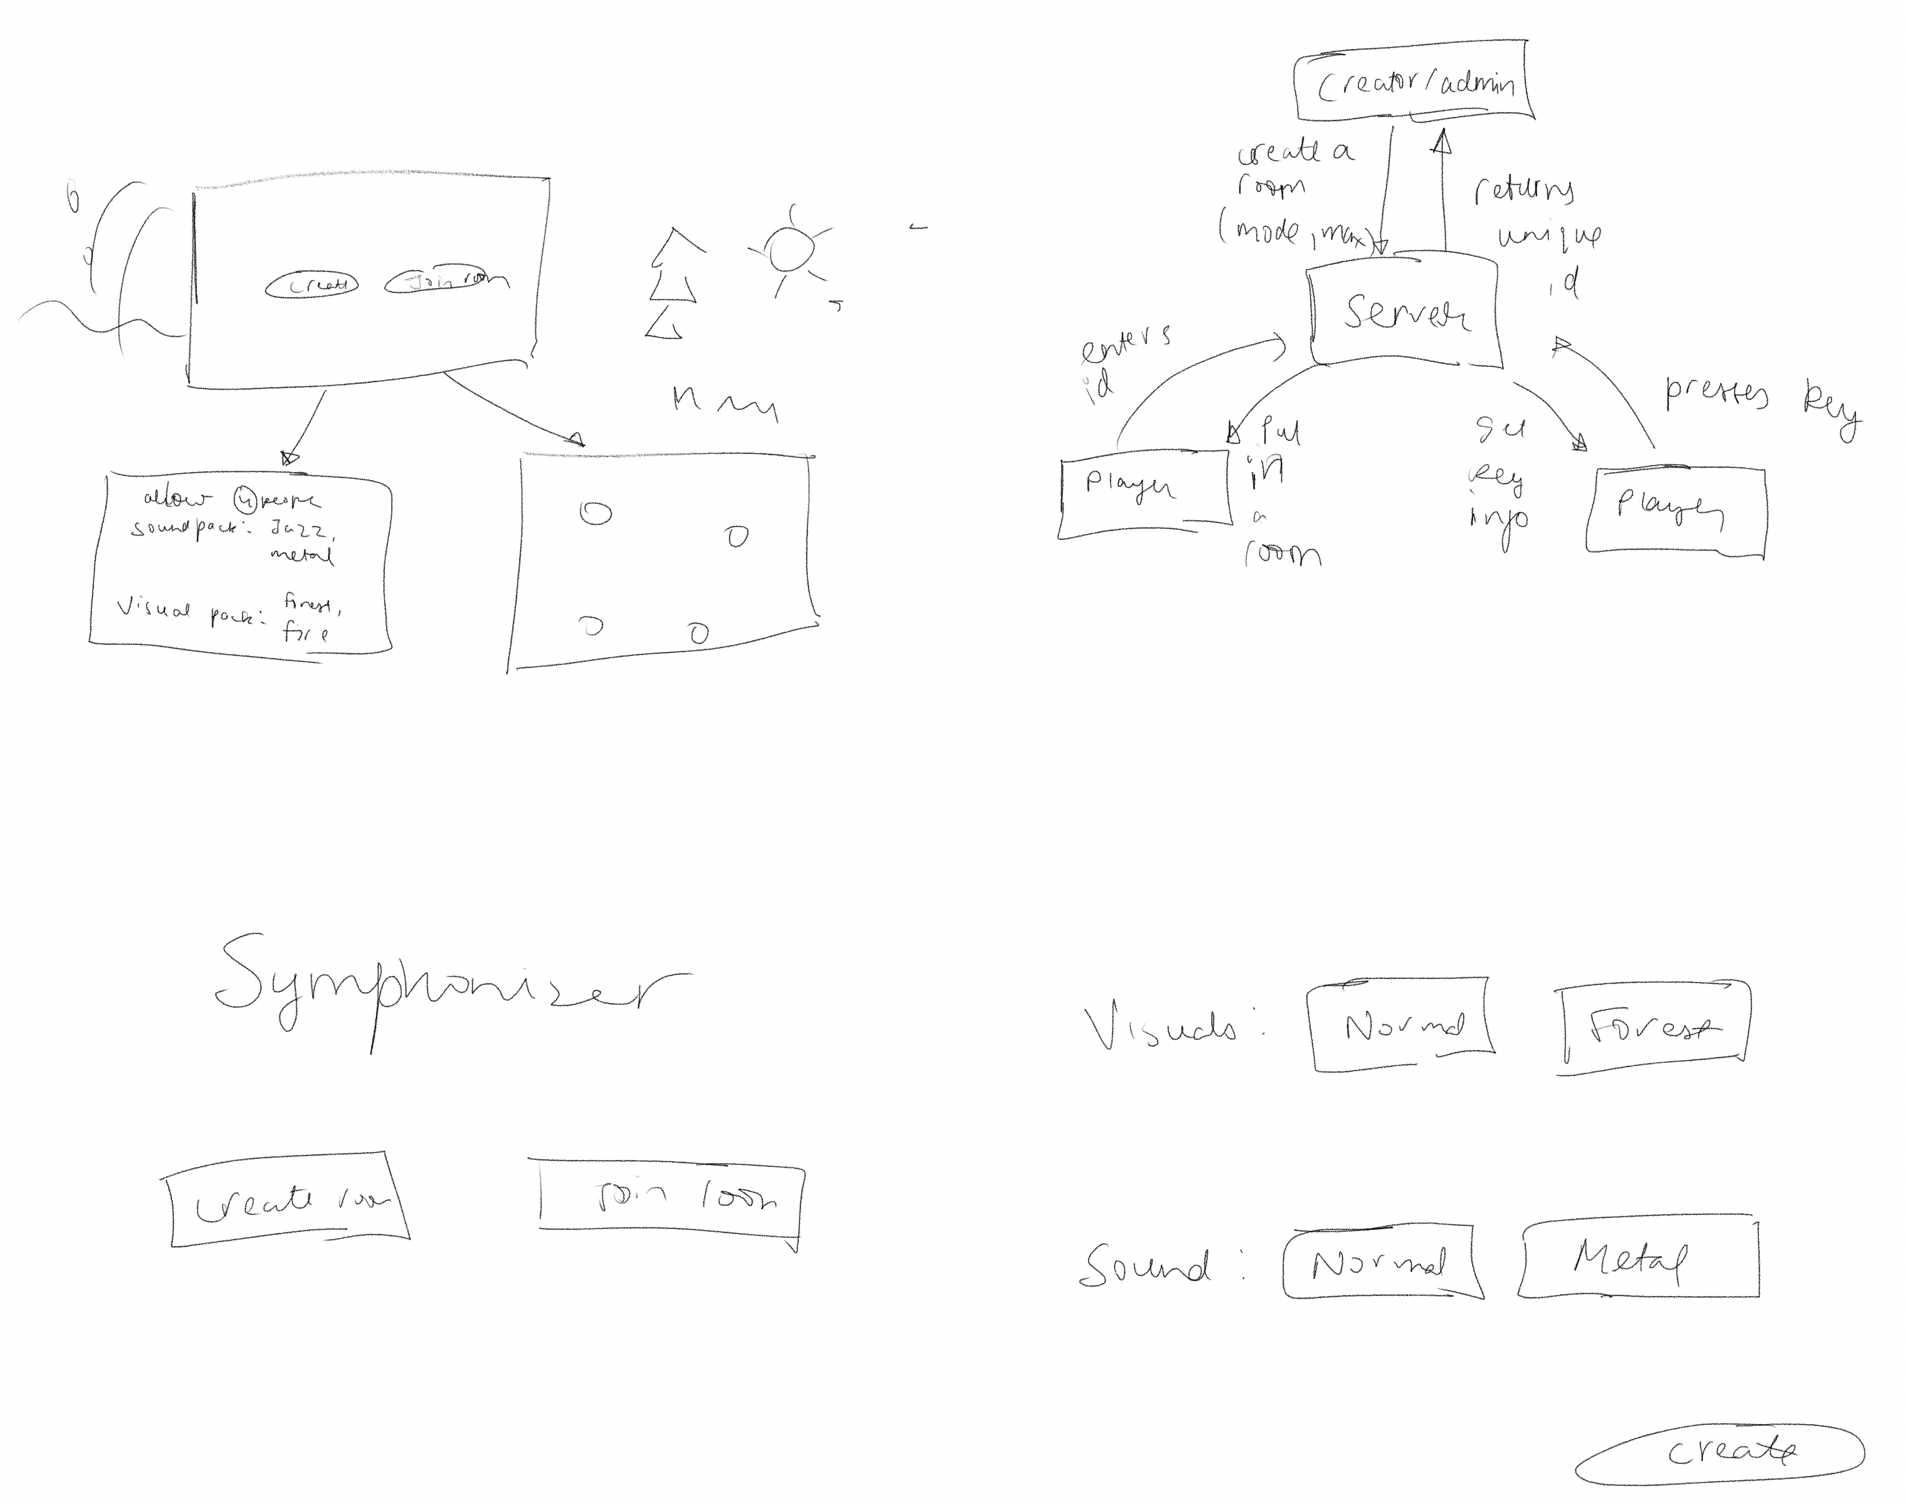 create
Join room
allow 4 people
soundpack: Jazz,
metal
Visual pack: forest,
fire
creator/admin
create a
room
(mode, max)
returns
unique
id
Server
enters
id
put
in
a
room
Player
get
key
info
presses key
Player
Symphonizer
create room
join room
Visuals:
Normal
Forest
Sound:
Normal
Metal
create